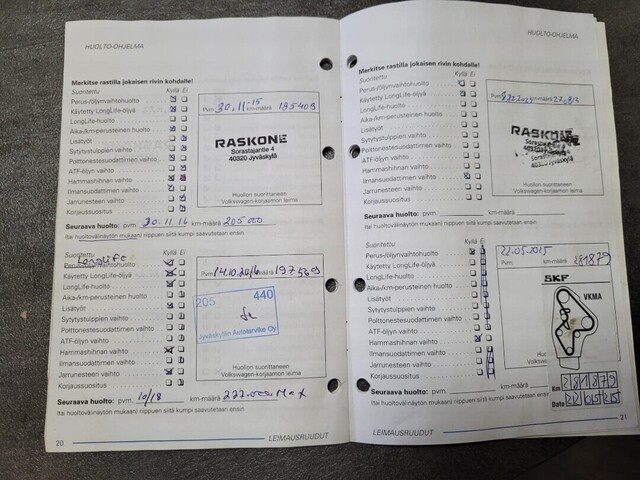 HUOLTO-OHJELMA
Merkitse rastilla jokaisen rivin kohdalle!
Suoritettu Kyllä Ei
Perus-/öljynvaihtohuolto
Käytetty LongLife-öljyä
LongLife-huolto
Aika-/km-perusteinen huolto
Lisätyöt
Sytytystulppien vaihto
Polttonestesuodattimen vaihto
ATF-öljyn vaihto
Hammashihnan vaihto
Ilmansuodattimen vaihto
Jarrunesteen vaihto
Korjaussuositus
Pvm. 30.11-15 km-määrä 185409
RASKONE
Sorastajantie 4
40320 Jyväskylä
Huollon suorittaneen
Volkswagen-korjaamon leima
Seuraava huolto: pvm. 30.11.16 km-määrä 205000
(tai huoltovälinäytön mukaan) riippuen siitä kumpi saavutetaan ensin
Suoritettu Longlife Kyllä Ei
Perus-/öljynvaihtohuolto
Käytetty LongLife-öljyä
LongLife-huolto
Aika-/km-perusteinen huolto
Lisätyöt
Sytytystulppien vaihto
Polttonestesuodattimen vaihto
ATF-öljyn vaihto
Hammashihnan vaihto
Ilmansuodattimen vaihto
Jarrunesteen vaihto
Korjaussuositus
Pvm. 14.10.2016 km-määrä
205 440
Jyväskylän Autotarvike Oy
Huollon suorittaneen
Volkswagen-korjaamon leima
Seuraava huolto: pvm. 10/18 km-määrä Max
(tai huoltovälinäytön mukaan) riippuen siitä kumpi saavutetaan ensin
20 LEIMAUSRUUDUT
HUOLTO-OHJELMA
Merkitse rastilla jokaisen rivin kohdalle!
Suoritettu Kyllä Ei
Perus-/öljynvaihtohuolto
Käytetty LongLife-öljyä
LongLife-huolto
Aika-/km-perusteinen huolto
Lisätyöt
Sytytystulppien vaihto
Polttonestesuodattimen vaihto
ATF-öljyn vaihto
Hammashihnan vaihto
Ilmansuodattimen vaihto
Jarrunesteen vaihto
Korjaussuositus
Pvm. km-määrä
RASKONE
Sorastajantie 4
40320 Jyväskylä
Huollon suorittaneen
Volkswagen-korjaamon leima
Seuraava huolto: pvm. km-määrä
(tai huoltovälinäytön mukaan) riippuen siitä kumpi saavutetaan ensin
Suoritettu Kyllä Ei
Perus-/öljynvaihtohuolto
Käytetty LongLife-öljyä
LongLife-huolto
Aika-/km-perusteinen huolto
Lisätyöt
Sytytystulppien vaihto
Polttonestesuodattimen vaihto
ATF-öljyn vaihto
Hammashihnan vaihto
Ilmansuodattimen vaihto
Jarrunesteen vaihto
Korjaussuositus
22.05.2015
Pvm. km-määrä 281879
SKF
VKMA
Volkswagen-korjaamon
Km 281879
Date
Seuraava huolto: pvm. km-määrä
(tai huoltovälinäytön mukaan) riippuen siitä kumpi saavutetaan ensin
LEIMAUSRUUDUT 21